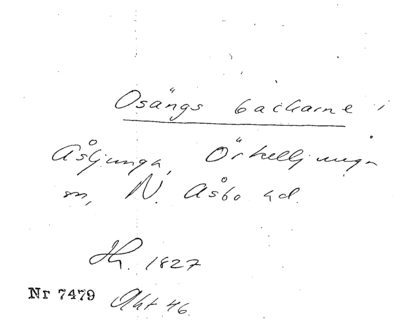 Osängs backarne i
Åsljunga, Örkelljunga
sn, N. Åsbo hd.
Th. 1827
Nr 7479 Akt 46.